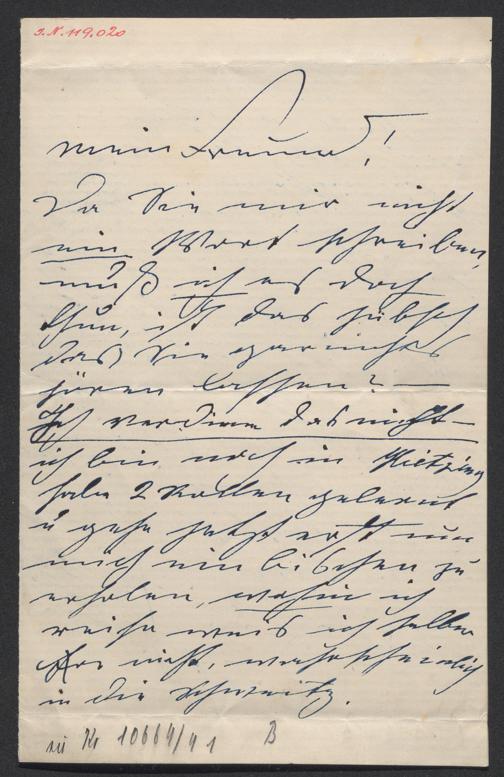 I.N. 119.020
mein Freund!
Da Sie mir nicht
ein Wort schreiben,
muß ich es doch
thun, ist das hübsch
das Sie gar nichts
hören lassen? —
Ich verdiene das nicht —
ich bin noch in Hietzing
habe 2 Rollen gelernt
u gehe jetzt erst um
mich ein bischen zu
erholen, wohin ich
reise weis ich selber
nicht, wahrscheinlich
in die Schweitz.
zu Kr 10664/41 B